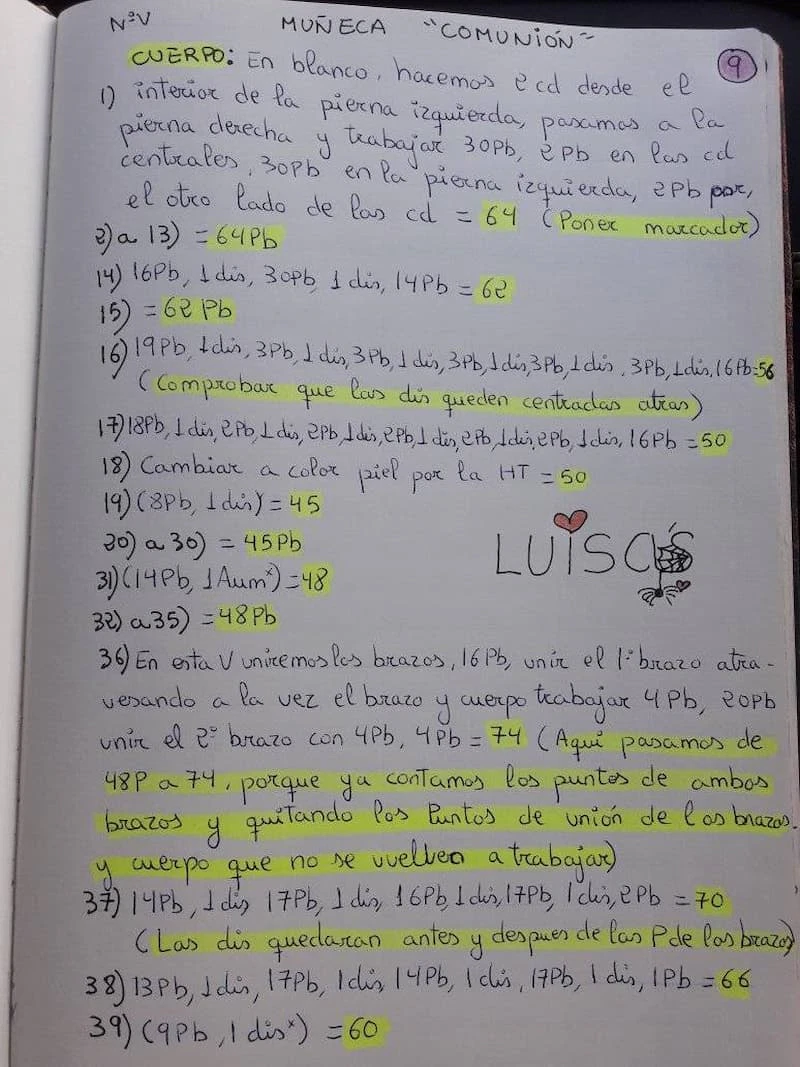 NºV MUÑECA "COMUNIÓN"
9
CUERPO: En blanco, hacemos 2 cd desde el
1) interior de la pierna izquierda, pasamos a la
pierna derecha y trabajar 30Pb, 2Pb en las cd
centrales, 30Pb en la pierna izquierda, 2Pb por,
el otro lado de las cd = 64 (Poner marcador)
2) a 13) = 64Pb
14) 16Pb, 1 dis, 30Pb, 1 dis, 14Pb = 62
15) = 62 Pb
16) 19Pb, 1dis, 3Pb, 1 dis, 3Pb, 1 dis, 3Pb, 1dis, 3Pb, 1 dis, 3Pb, 1dis, 16Pb=56
(Comprobar que las dis queden centradas atras)
17) 18Pb, 1 dis, 2Pb, 1 dis, 2Pb, 1dis, 2Pb, 1 dis, 2Pb, 1dis, 2Pb, 1 dis, 16Pb = 50
18) Cambiar a color piel por la HT = 50
19) (8Pb, 1 disˣ) = 45
LUISA'S
20) a 30) = 45Pb
31) (14Pb, 1 Aumˣ) = 48
32) a 35) = 48Pb
36) En esta V uniremos los brazos, 16 Pb, unir el 1º brazo atra-
vesando a la vez el brazo y cuerpo trabajar 4Pb, 20Pb
unir el 2º brazo con 4Pb, 4Pb = 74 (Aqui pasamos de
48P a 74, porque ya contamos los puntos de ambos
brazos y quitando los Puntos de unión de los brazos.
y cuerpo que no se vuelven a trabajar)
37) 14Pb, 1 dis, 17Pb, 1 dis, 16Pb, 1 dis, 17Pb, 1 dis, 2Pb = 70
(Las dis quedaran antes y despues de las P de los brazos)
38) 13Pb, 1 dis, 17Pb, 1 dis, 14Pb, 1 dis, 17Pb, 1 dis, 1Pb = 66
39) (9Pb, 1 disˣ) = 60